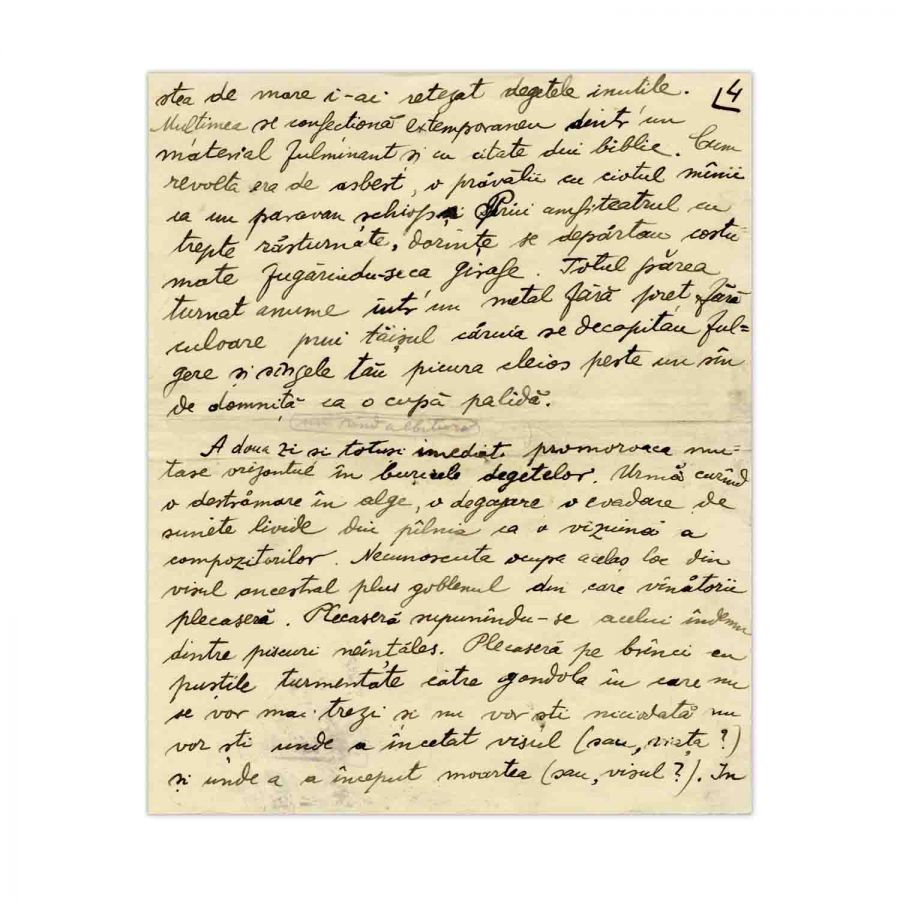 stea de mare i-ai retezat degetele inutile. 4
Mulțimea se confecționă extemporaneu dintr'un
material fulminant și cu citate din biblie. Cum
revolta era de asbest, o prăvălii cu ciotul mînii
ca un paravan schiop Prin amfiteatrul cu
trepte răsturnate, dorințe se depărtau costu-
mate fugărindu-se ca girafe. Totul părea
turnat anume într'un metal fără preț, fără
culoare prin tăișul căruia se decapitau ful=
gere și sîngele tău picura cleios peste un sîn
de domniță ca o cupă palidă.
un rând albitură
A doua zi și totuși imediat promoroaca mu-
tase orizontul în buricele degetelor. Urmă curînd
o destrămare în alge, o degajare o evadare de
sunete livide din pîlnia ca o vizuină a
compozitorilor. Necunoscuta ocupa acelaș loc din
visul ancestral plus goblenul din care vînătorii
plecaseră. Plecaseră supunîndu-se acelui îndemn
dintre piscuri neînțeles. Plecaseră pe brînci cu
puștile turmentate către gondola în care nu
se vor mai trezi și nu vor ști niciodată nu
vor ști unde a încetat visul (sau, viața?)
și unde a a început moartea (sau, visul?). In